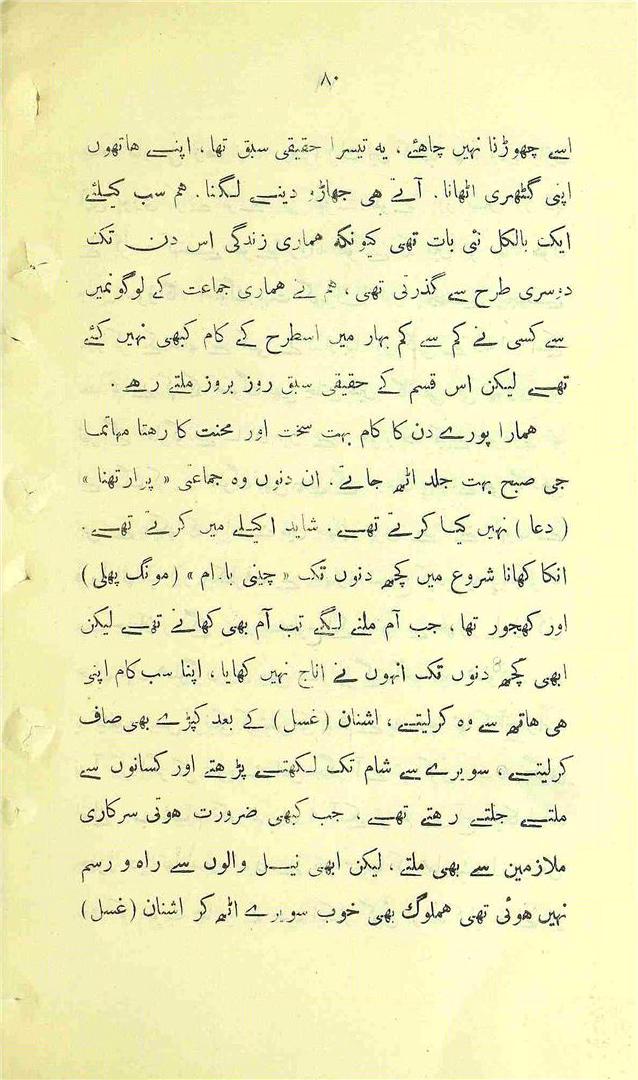 ۸۰
اسے چھوڑنا نہیں چاهئے ، یه تیسرا حقیقی سبق تھا ، اپنے هاتھوں
اپنی گٹھری اٹھانا . آتے هی جھاڑو دینے لگنا . هم سب کیلئے
ایک بالکل نئی بات تھی کیونکه هماری زندگی اس دن تک
دوسری طرح سے گذرتی تھی ، هم نے هماری جماعت کے لوگونمیں
سے کسی نے کم سے کم بہار میں اسطرح کے کام کبھی نہیں کئے
تھے لیکن اس قسم کے حقیقی سبق روز بروز ملتے رهے .
همارا پورے دن کا کام بہت سخت اور محنت کا رهتا مہاتما
جی صبح بہت جلد اٹھ جاتے . ان دنوں وه جماعتی « پرارتھنا »
( دعا ) نہیں کیا کرتے تھے . شاید اکیلے میں کرتے تھے .
انکا کھانا شروع میں کچھ دنوں تک « چینی بادام » (مونگ پھلی)
اور کھجور تھا ، جب آم ملنے لگے تب آم بھی کھاتے تھے لیکن
ابھی کچھ دنوں تک انہوں نے اناج نہیں کھایا ، اپنا سب کام اپنی
هی هاتھ سے وه کرلیتے ، اشنان (غسل) کے بعد کپڑے بھی صاف
کرلیتے ، سویرے سے شام تک لکھتے پڑھتے اور کسانوں سے
ملتے جلتے رهتے تھے ، جب کبھی ضرورت هوتی سرکاری
ملازمین سے بھی ملتے ، لیکن ابھی نیل والوں سے راه و رسم
نہیں هوئی تھی هملوگ بھی خوب سویرے اٹھ کر اشنان (غسل)